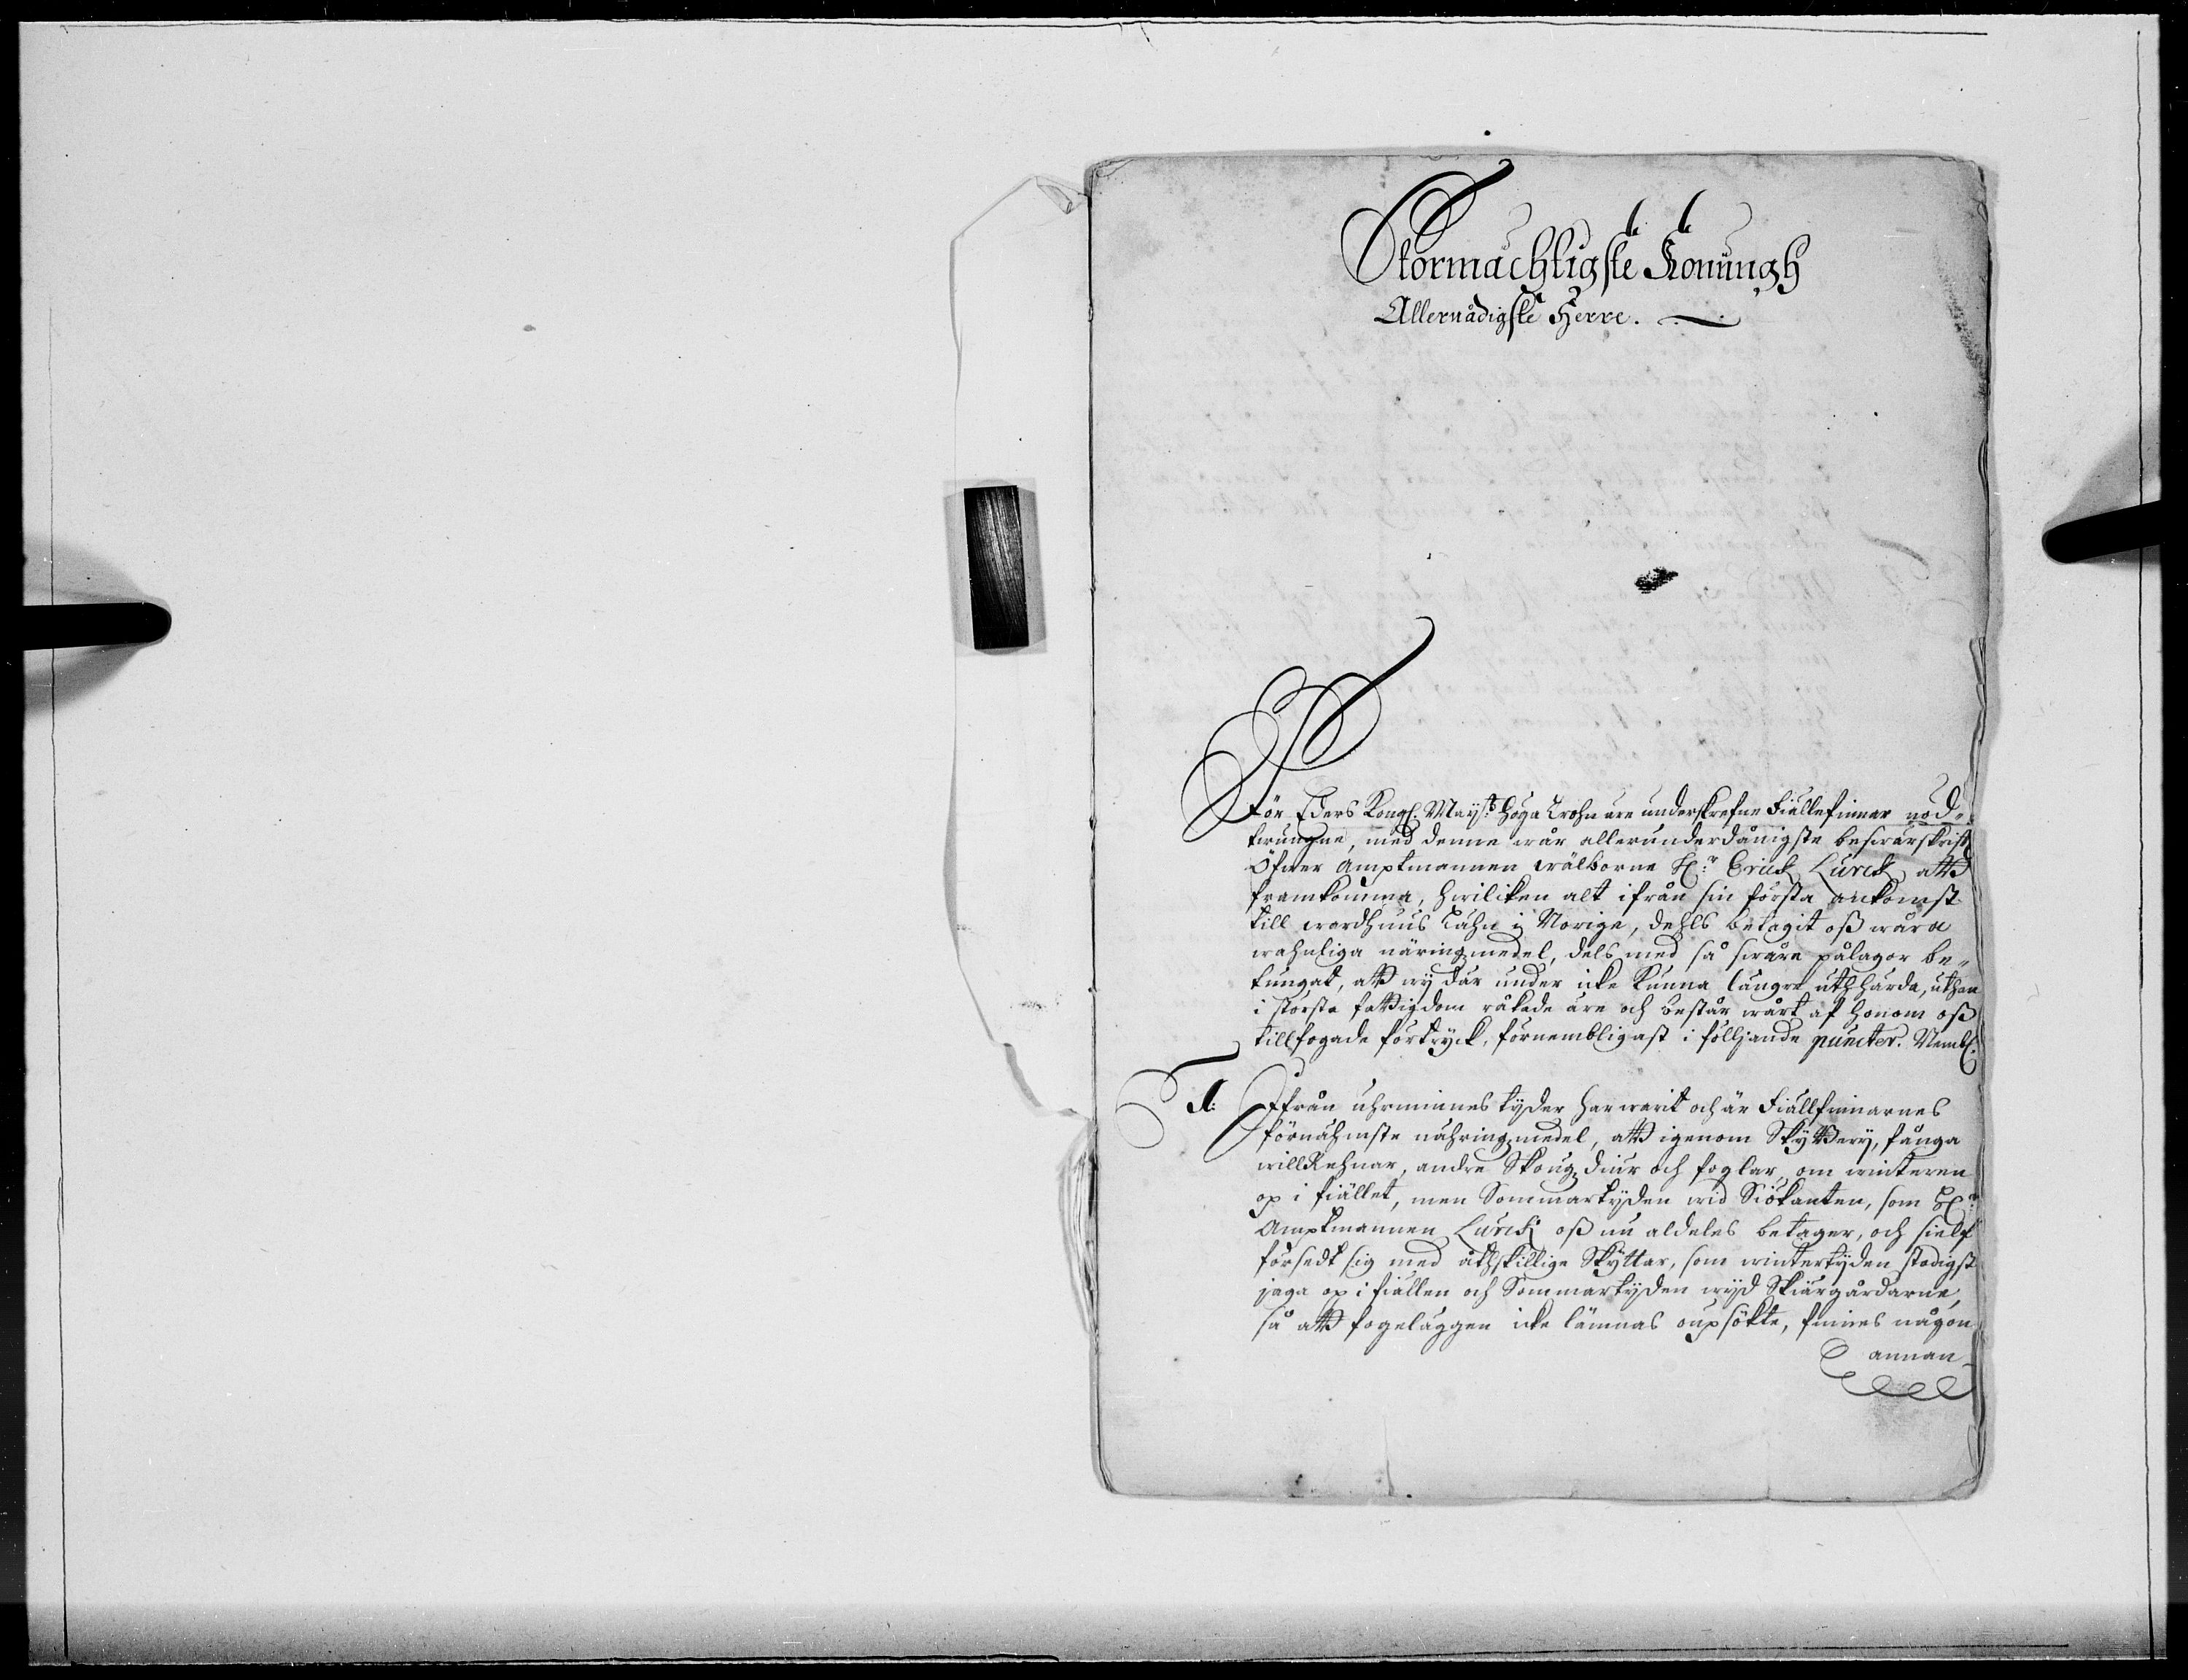 Stormächtigste Konungh
Allernådigste Herre.
För Eders Kongl. Mayst:s höga Trohn äre underskrefne Fiällefinnar nöd-
twungne, med denne wår allerunderdånigste beswärskrift
Öfwer Amptmannen wälborne H:r Erick Lürck att
framkomma, hwilcken alt ifrån sin första ankomst
till wardhuus Lähn i Norige, dehls betagit oss wåra
wahnliga näringzmedel, dels med så swåra pålagor be-
tungat, att wij där under icke kunna längre uthharda, uthan
i största fattigdom råkade äre och består wårt af honom oss
tillfogade förtryck, förnembligast i fölljande puncter. Nembl.
1: Ifrån uhrminnes tyder har warit och är Fiällfinnarnes
förnähmste nähringzmedel, att igenom Skytterij, fånga
willRehnar, andre Skougzdiur och foglar, om winteren
op i fiället, men Sommartyden wid Siökanten, som H:r
Amptmannen Lürck oss nu aldeles betager, och sielf
försedt sig med åthskillige Skyttar, som wintertyden stadigst
jaga op i fiällen och Sommartyden wijd Skiärgårdarne,
så att fogeläggen icke lämnas oupsökte, finnes någon
annan